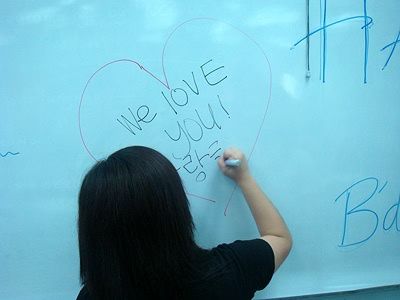 We love
you!
HA
B'd